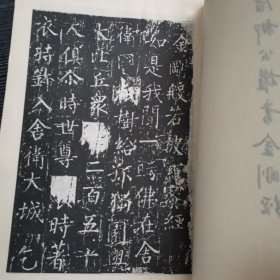 柳公權書金剛經
金剛般若波羅蜜經
如是我聞一時佛在舍
衛國樹給孤獨園與
大比丘衆二百五十
人俱尒時世尊時著
衣持鉢入舍衛大城乞